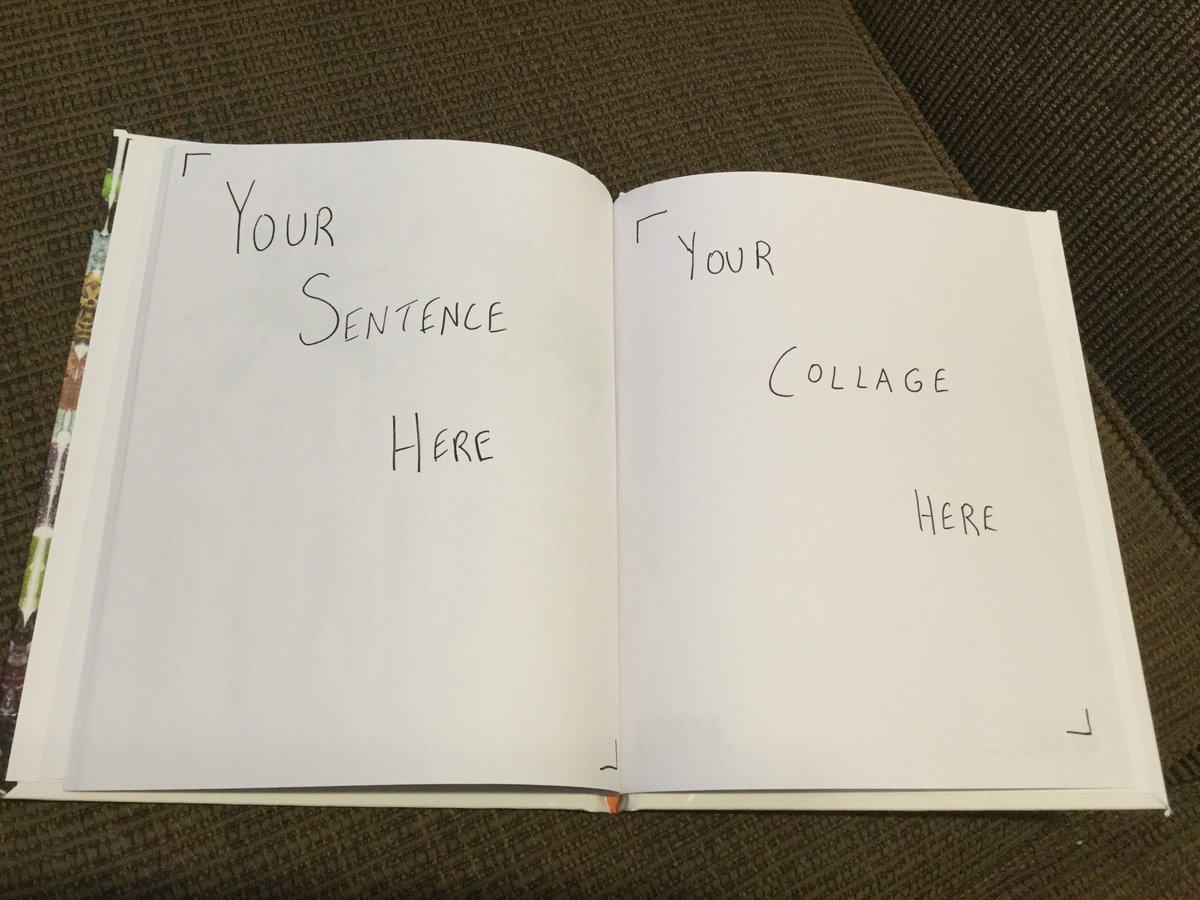 Your
Sentence
Here
Your
Collage
Here